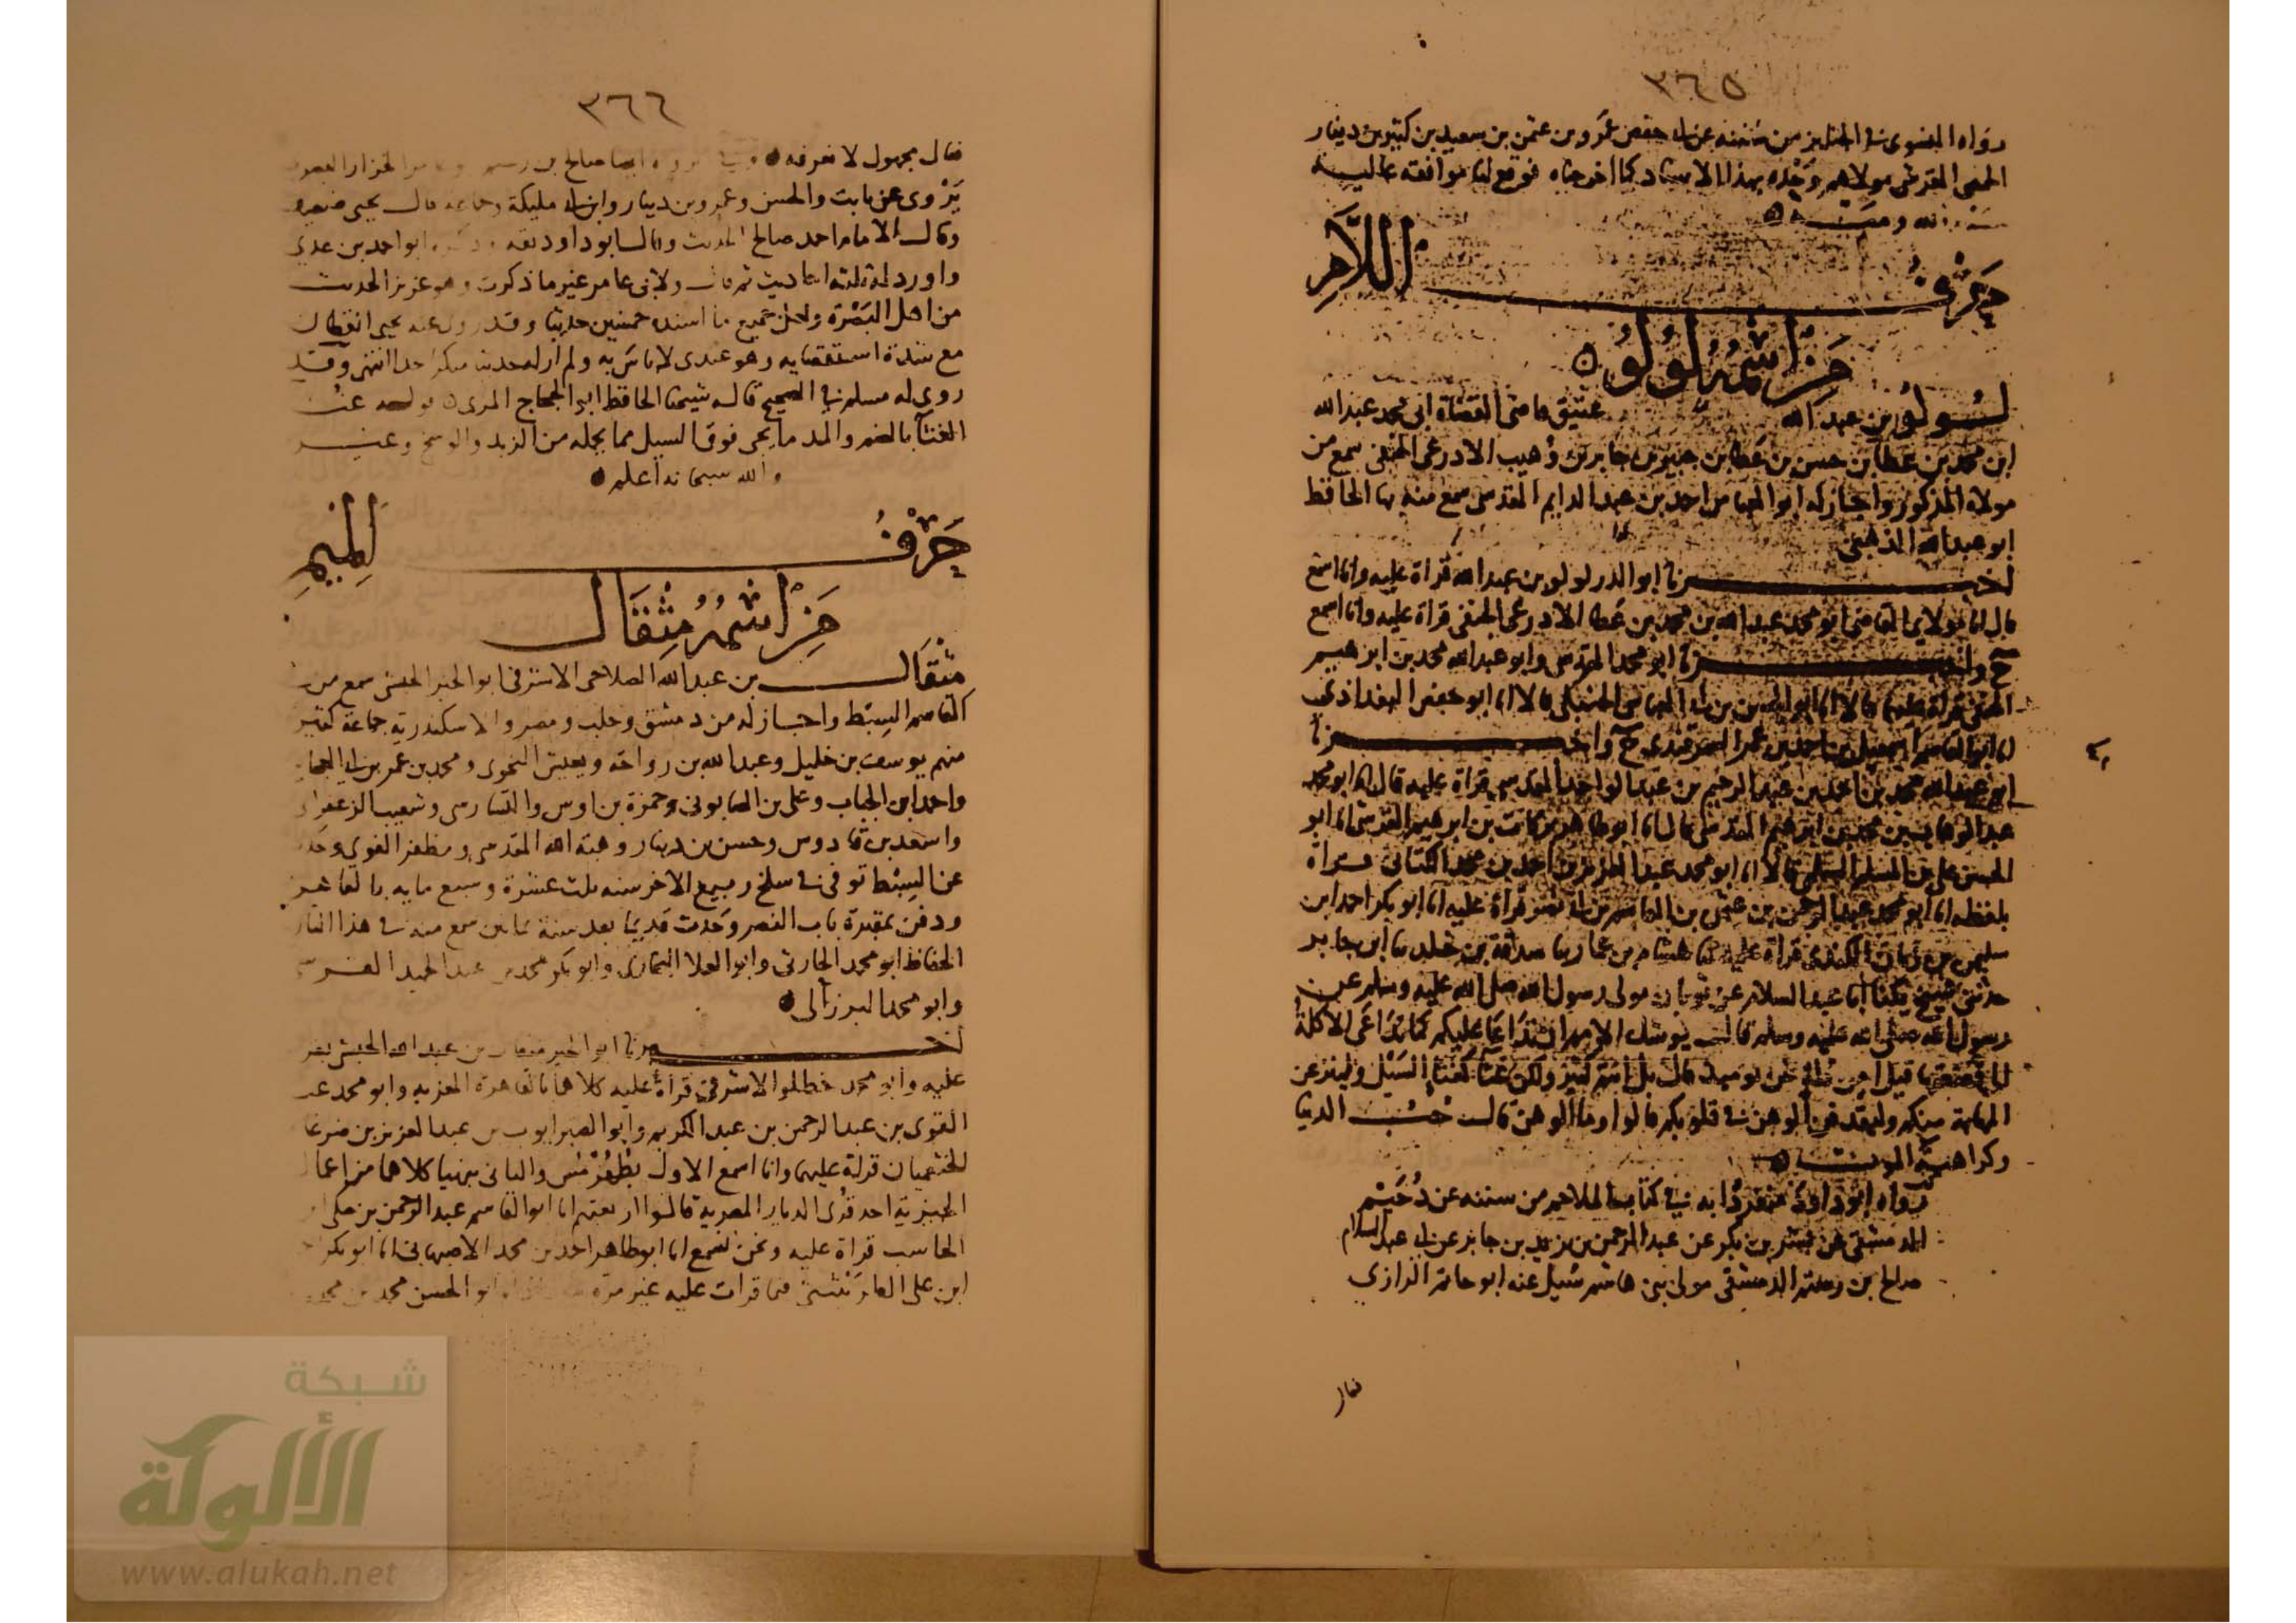 ٣٦٥
رواه النسوى في الجنايز من سننه عن ابي حفص عمرو بن عثمن بن سعيد بن كثير بن دينار
الحمصى القرشى مولاهم وحده بهذا الاسناد كما اخرجناه فوقع لنا موافقة عالية
ولله
حرف اللام
من اسمه لولو
لولو بن عبد الله عتيق قاضى القضاة ابى محمد عبد الله
ابن محمد بن عطا بن حسن بن عطا بن جبير بن جابر بن وهيب الاذرعى الحنفى سمع من
مولاه المذكور واجاز له ابو العباس احمد بن عبد الدايم المقدسى سمع منه بها الحافظ
ابو عبد الله الذهبى
اخبرنا ابو الدر لولو بن عبد الله قراة عليه وانا اسمع
قال انا مولاى القاضى ابو محمد عبد الله بن محمد بن عطا الاذرعى الحنفى قراة عليه وانا اسمع
ح واخبرنا ابو محمد المقدسى وابو عبد الله محمد بن ابرهيم
قراة عليهما قالا انا ابو العباس الحنبلى قالا انا ابو حفص البغداذى
انا ابو القاسم اسمعيل بن احمد بن عمر السمرقندى ح واخبرنا
ابو عبد الله محمد بن احمد بن عبد الرحيم بن عبد الواحد المقدسى قراة عليه قال انا ابو محمد
عبد الوهاب بن محمد بن ابرهيم المقدسى قال انا ابو طاهر بركات بن ابرهيم القرشى انا ابو
الحسن على بن المسلم السلمى قالا انا ابو محمد عبد العزيز بن احمد بن محمد الكتانى قراة
بلفظه انا ابو محمد عبد الرحمن بن عثمن بن القاسم بن ابى نصر قراة عليه انا ابو بكر احمد ابن
سليمن بن زبان الكندى قراة عليه ثنا هشام بن عمار ثنا صدقة بن خالد ثنا ابن جابر
حدثنى شيخ يكنا ابا عبد السلام عن ثوبان مولى رسول الله صلى الله عليه وسلم عن
رسول الله صلى الله عليه وسلم قال يوشك الامم ان تداعا عليكم كما تداعى الاكلة
الى قصعتها قيل امن قلة نحن يوميذ قال بل انتم كثير ولكن غثا كغثا السيل ولينزعن
المهابة منكم وليقذفن الوهن في قلوبكم قالوا وما الوهن قال حب الدنيا
وكراهية الموت
رواه ابو داود منفردا به في كتاب الملاحم من سننه عن دحيم
الدمشقى عن بشر بن بكر عن عبد الرحمن بن يزيد بن جابر عن ابى عبد السلام
صالح بن رستم الدمشقى مولى بنى هاشم سئيل عنه ابو حاتم الرازى
فقال
٣٦٦
فقال مجهول لا نعرفه ايضا صالح بن رستم ابو عامر الخزاز
يروى عن ثابت والحسن وعمرو بن دينار وابن ابى مليكة وجماعة قال يحيى ضعيف
وقال الامام احمد صالح الحديث وقال ابو داود ثقة وذكره ابو احمد بن عدى
واورد له ثلثة احاديث ثم قال ولابى عامر غير ما ذكرت وهو عزيز الحديث
من اهل البصرة ولعل جميع ما اسنده خمسين حديثا وقد روى عنه يحيى القطان
مع شدة استقصايه وهو عندى لا باس به ولم ار له حديثا منكرا جدا انتهى وقد
روى له مسلم في الصحيح قاله شيخنا الحافظ ابو الحجاج المزى قوله غثا
الغثا بالضم والمد ما يجى فوق السيل مما يحمله من الزبد والوسخ وغيره
والله سبحانه اعلم
حرف الميم
من اسمه مثقال
مثقال بن عبد الله الصلاحى الاشرفى ابو الخير الحبشى سمع من
القاسم السبط واجاز له من دمشق وحلب ومصر والاسكندرية جماعة كثير
منهم يوسف بن خليل وعبد الله بن رواحة ويعيش النحوى ومحمد بن عمر
واحمد ابن الجباب وعلى بن الصابونى وحمزة بن اوس والتسارسى وشعيب الزعفرانى
واسعد بن قادوس وحسن بن دينار وهبة الله المقدسى ومظفر الفوى
عن السبط توفى في سلخ ربيع الاخر سنة ثلث عشرة وسبع ماية بالقاهرة
ودفن بمقبرة باب النصر وحدث قديما بعد سنة ثمانين سمع منه في هذا التاريخ
الحفاظ ابو محمد الحارثى وابو العلا البخارى وابو بكر محمد بن عبد الحميد القرشى
وابو محمد البرزالى
اخبرنا ابو الخير مثقال بن عبد الله الحبشى
عليه وابو محمد خطلو الاشرفى قراة عليه كلاهما بالقاهرة المعزية وابو محمد عبد
القوى بن عبد الرحمن بن عبد الكريم وابو الصبر ايوب بن عبد العزيز بن ضرغام
الخثعميان قراة عليهما وانا اسمع الاول والثانى كلاهما من اعمال
الجيزية احد قرى الديار المصرية قالوا اربعتهم انا ابو القاسم عبد الرحمن بن مكى
الحاسب قراة عليه ونحن نسمع انا ابو طاهر احمد بن محمد الاصبهانى انا ابو بكر
ابن على الطريثيثى فيما قرات عليه غير مرة ابو الحسن محمد بن محمد
شبكة
الألوكة
www.alukah.net